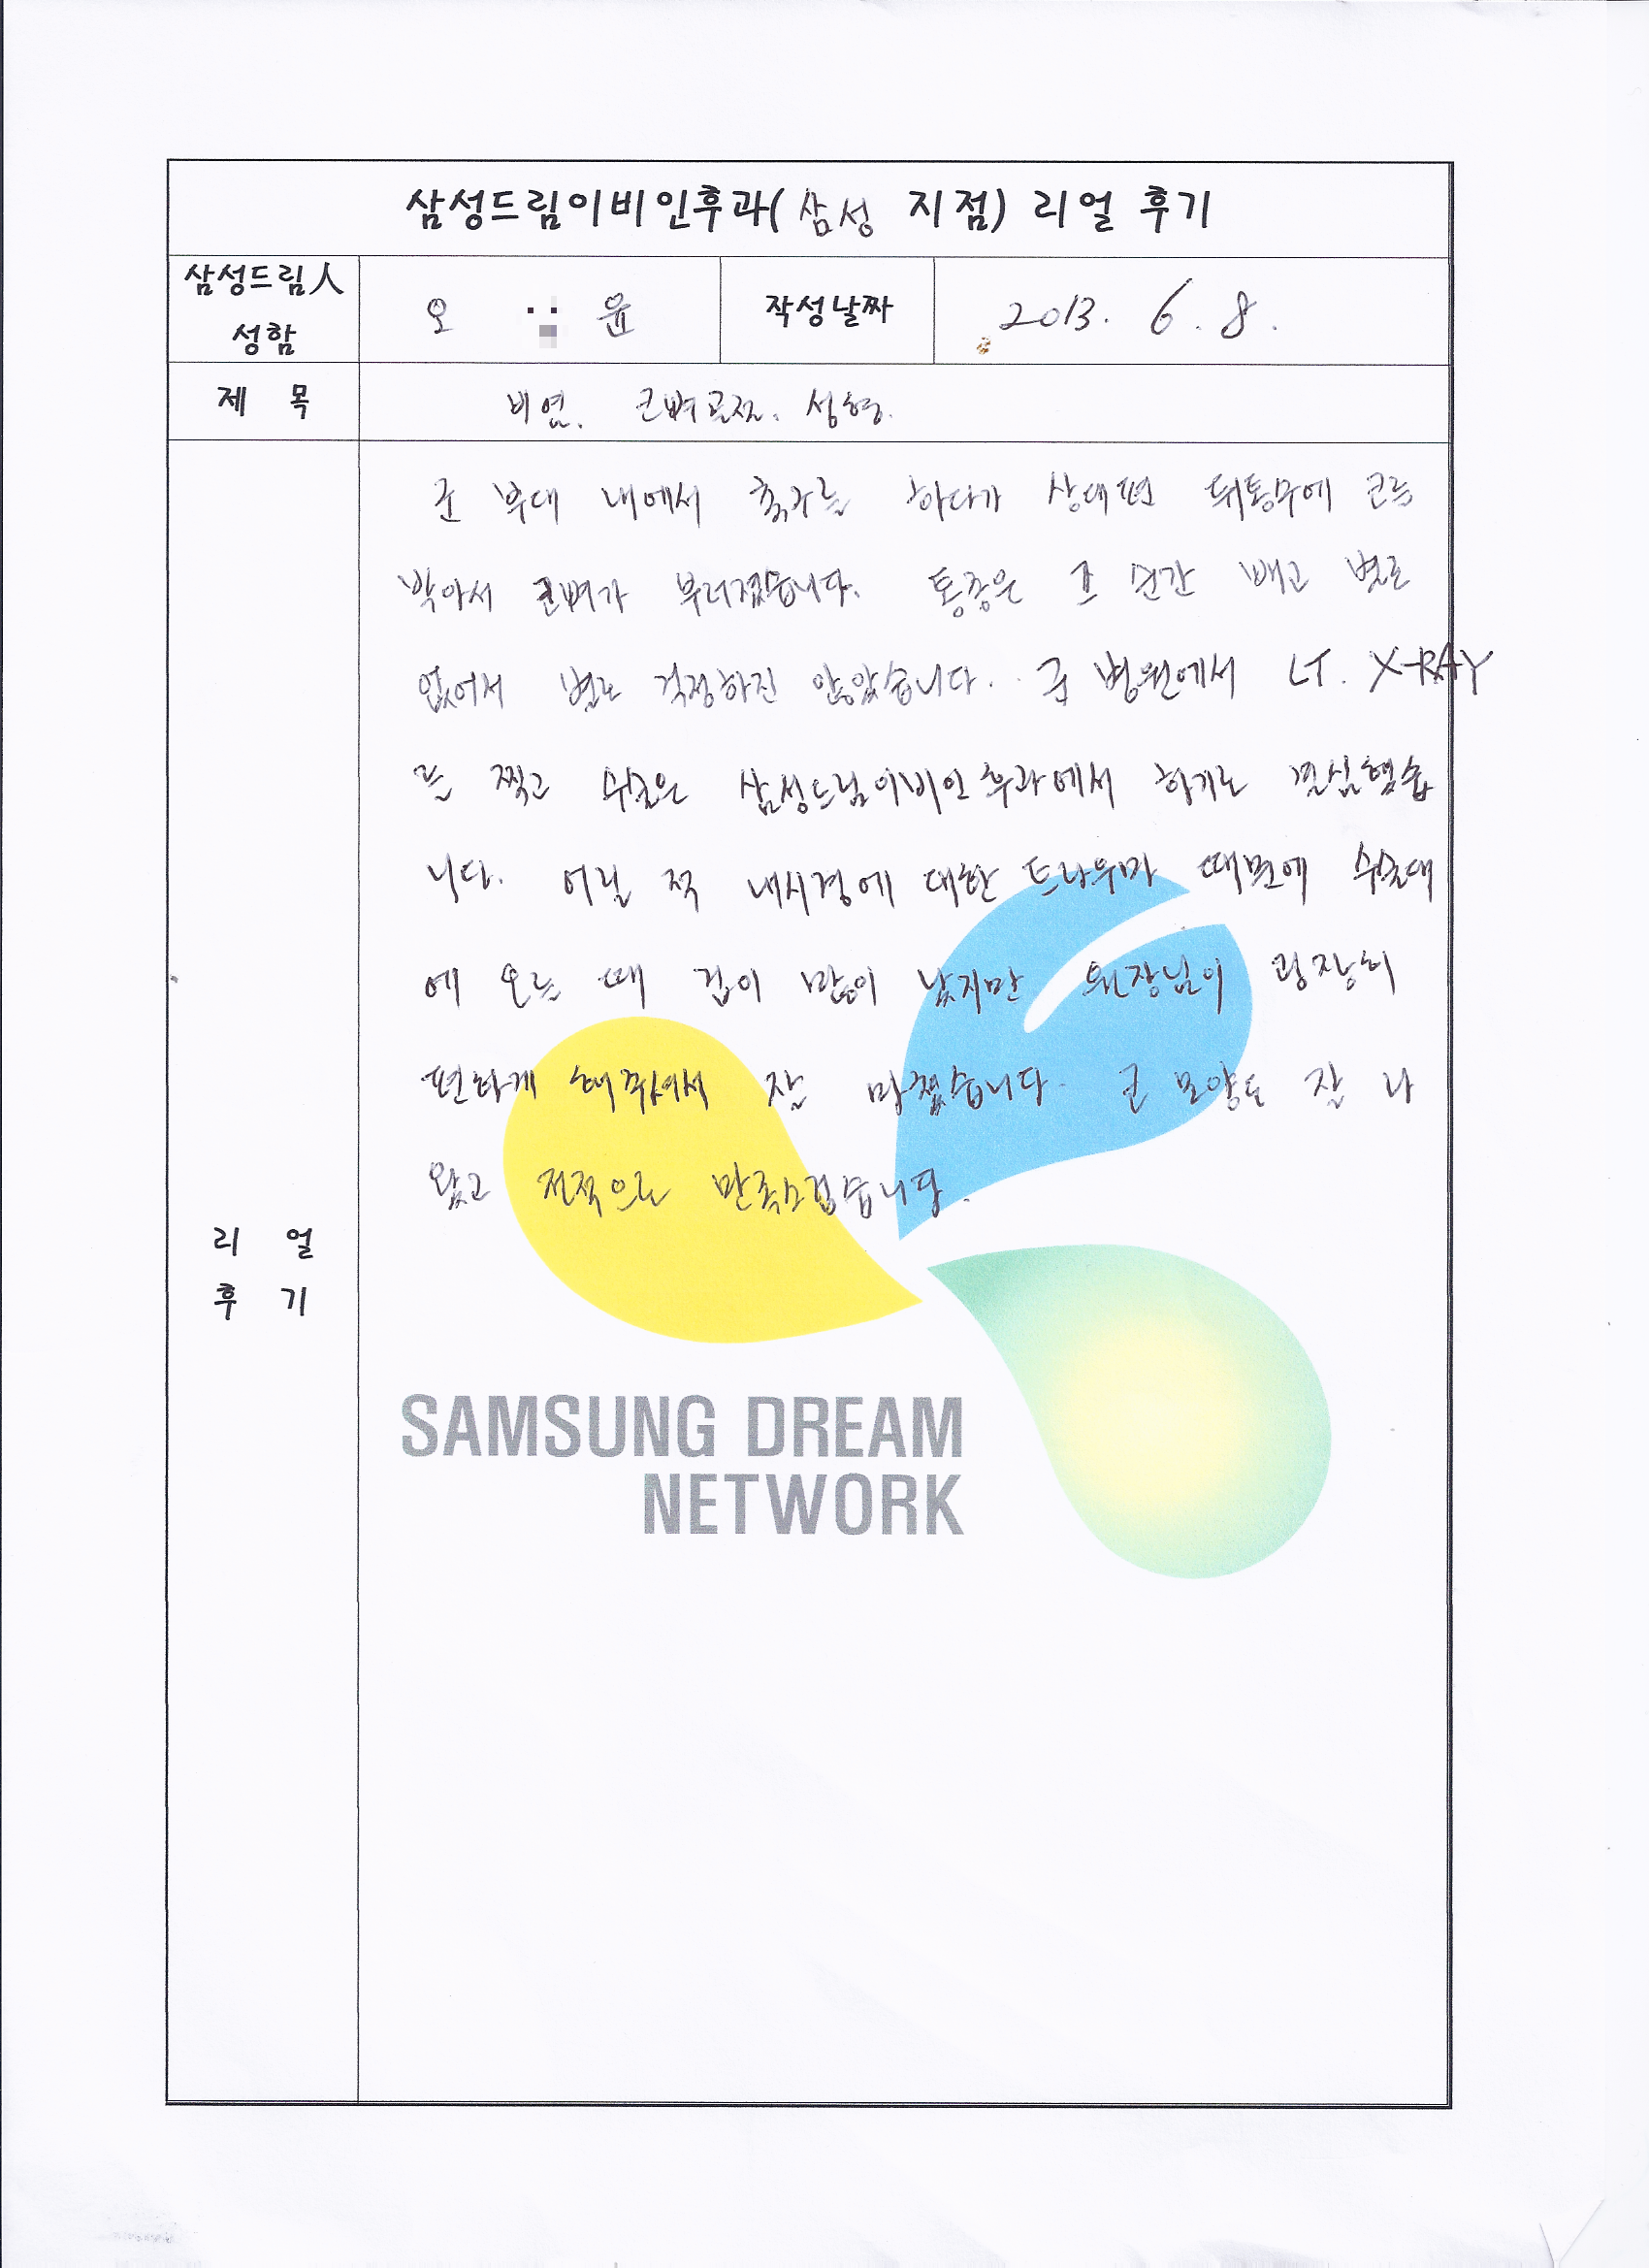 삼성드림이비인후과(삼성 지점) 리얼 후기
삼성드림人
성함
오 윤
작성날짜
2013. 6. 8.
제 목
비염. 코뼈골절. 성형.
군 부대 내에서 축구를 하다가 상대편 뒤통수에 코를
박아서 코뼈가 부러졌습니다. 통증은 그 순간 빼고 별로
없어서 별로 걱정하진 않았습니다. 군 병원에서 CT. X-RAY
를 찍고 수술은 삼성드림이비인후과에서 하기로 결심했습
니다. 어릴 적 내시경에 대한 트라우마 때문에 수술대
에 오를 때 겁이 많이 났지만 원장님이 굉장히
편하게 해주셔서 잘 마쳤습니다. 코 모양도 잘 나
왔고 전적으로 만족스럽습니다.
리 얼
후 기
SAMSUNG DREAM
NETWORK